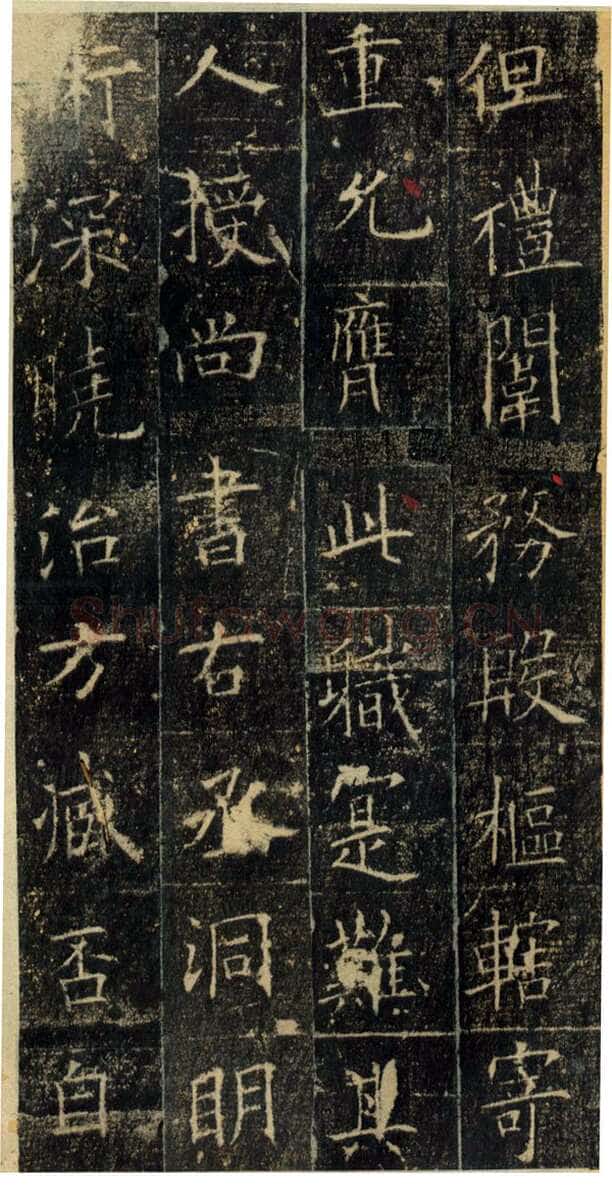 但禮闈務殷樞轄寄
重允膺此職寔難其
人授尚書右丞洞眀
行深曉治方臧否自
Shufawang.CN